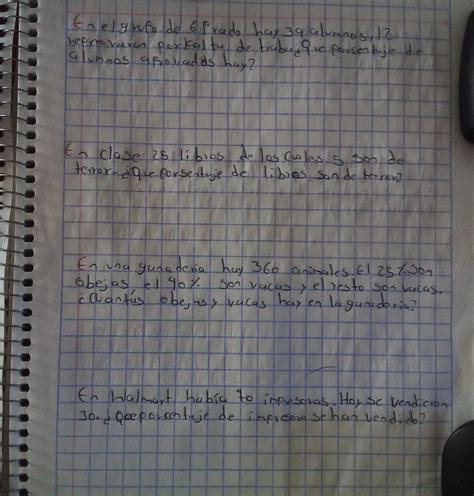 En el grupo de 6 grado hay 39 alumnos, 12
reprovaran por falta de trabajo, Que porcentaje de
alumnos aprovados hay?
En clase 25 libros de los cuales 5 son de
terror ¿Que porsentaje de libros son de terror?
En una ganaderia hay 360 animales. El 25% son
obejas, el 40% son vacas y el resto son vacas.
¿Cuántas obejas y vacas hay en la ganaderia?
En Walmart había 70 impresoras. Hoy se vendieron
30. ¿que porcentaje de impresora se han vendido?